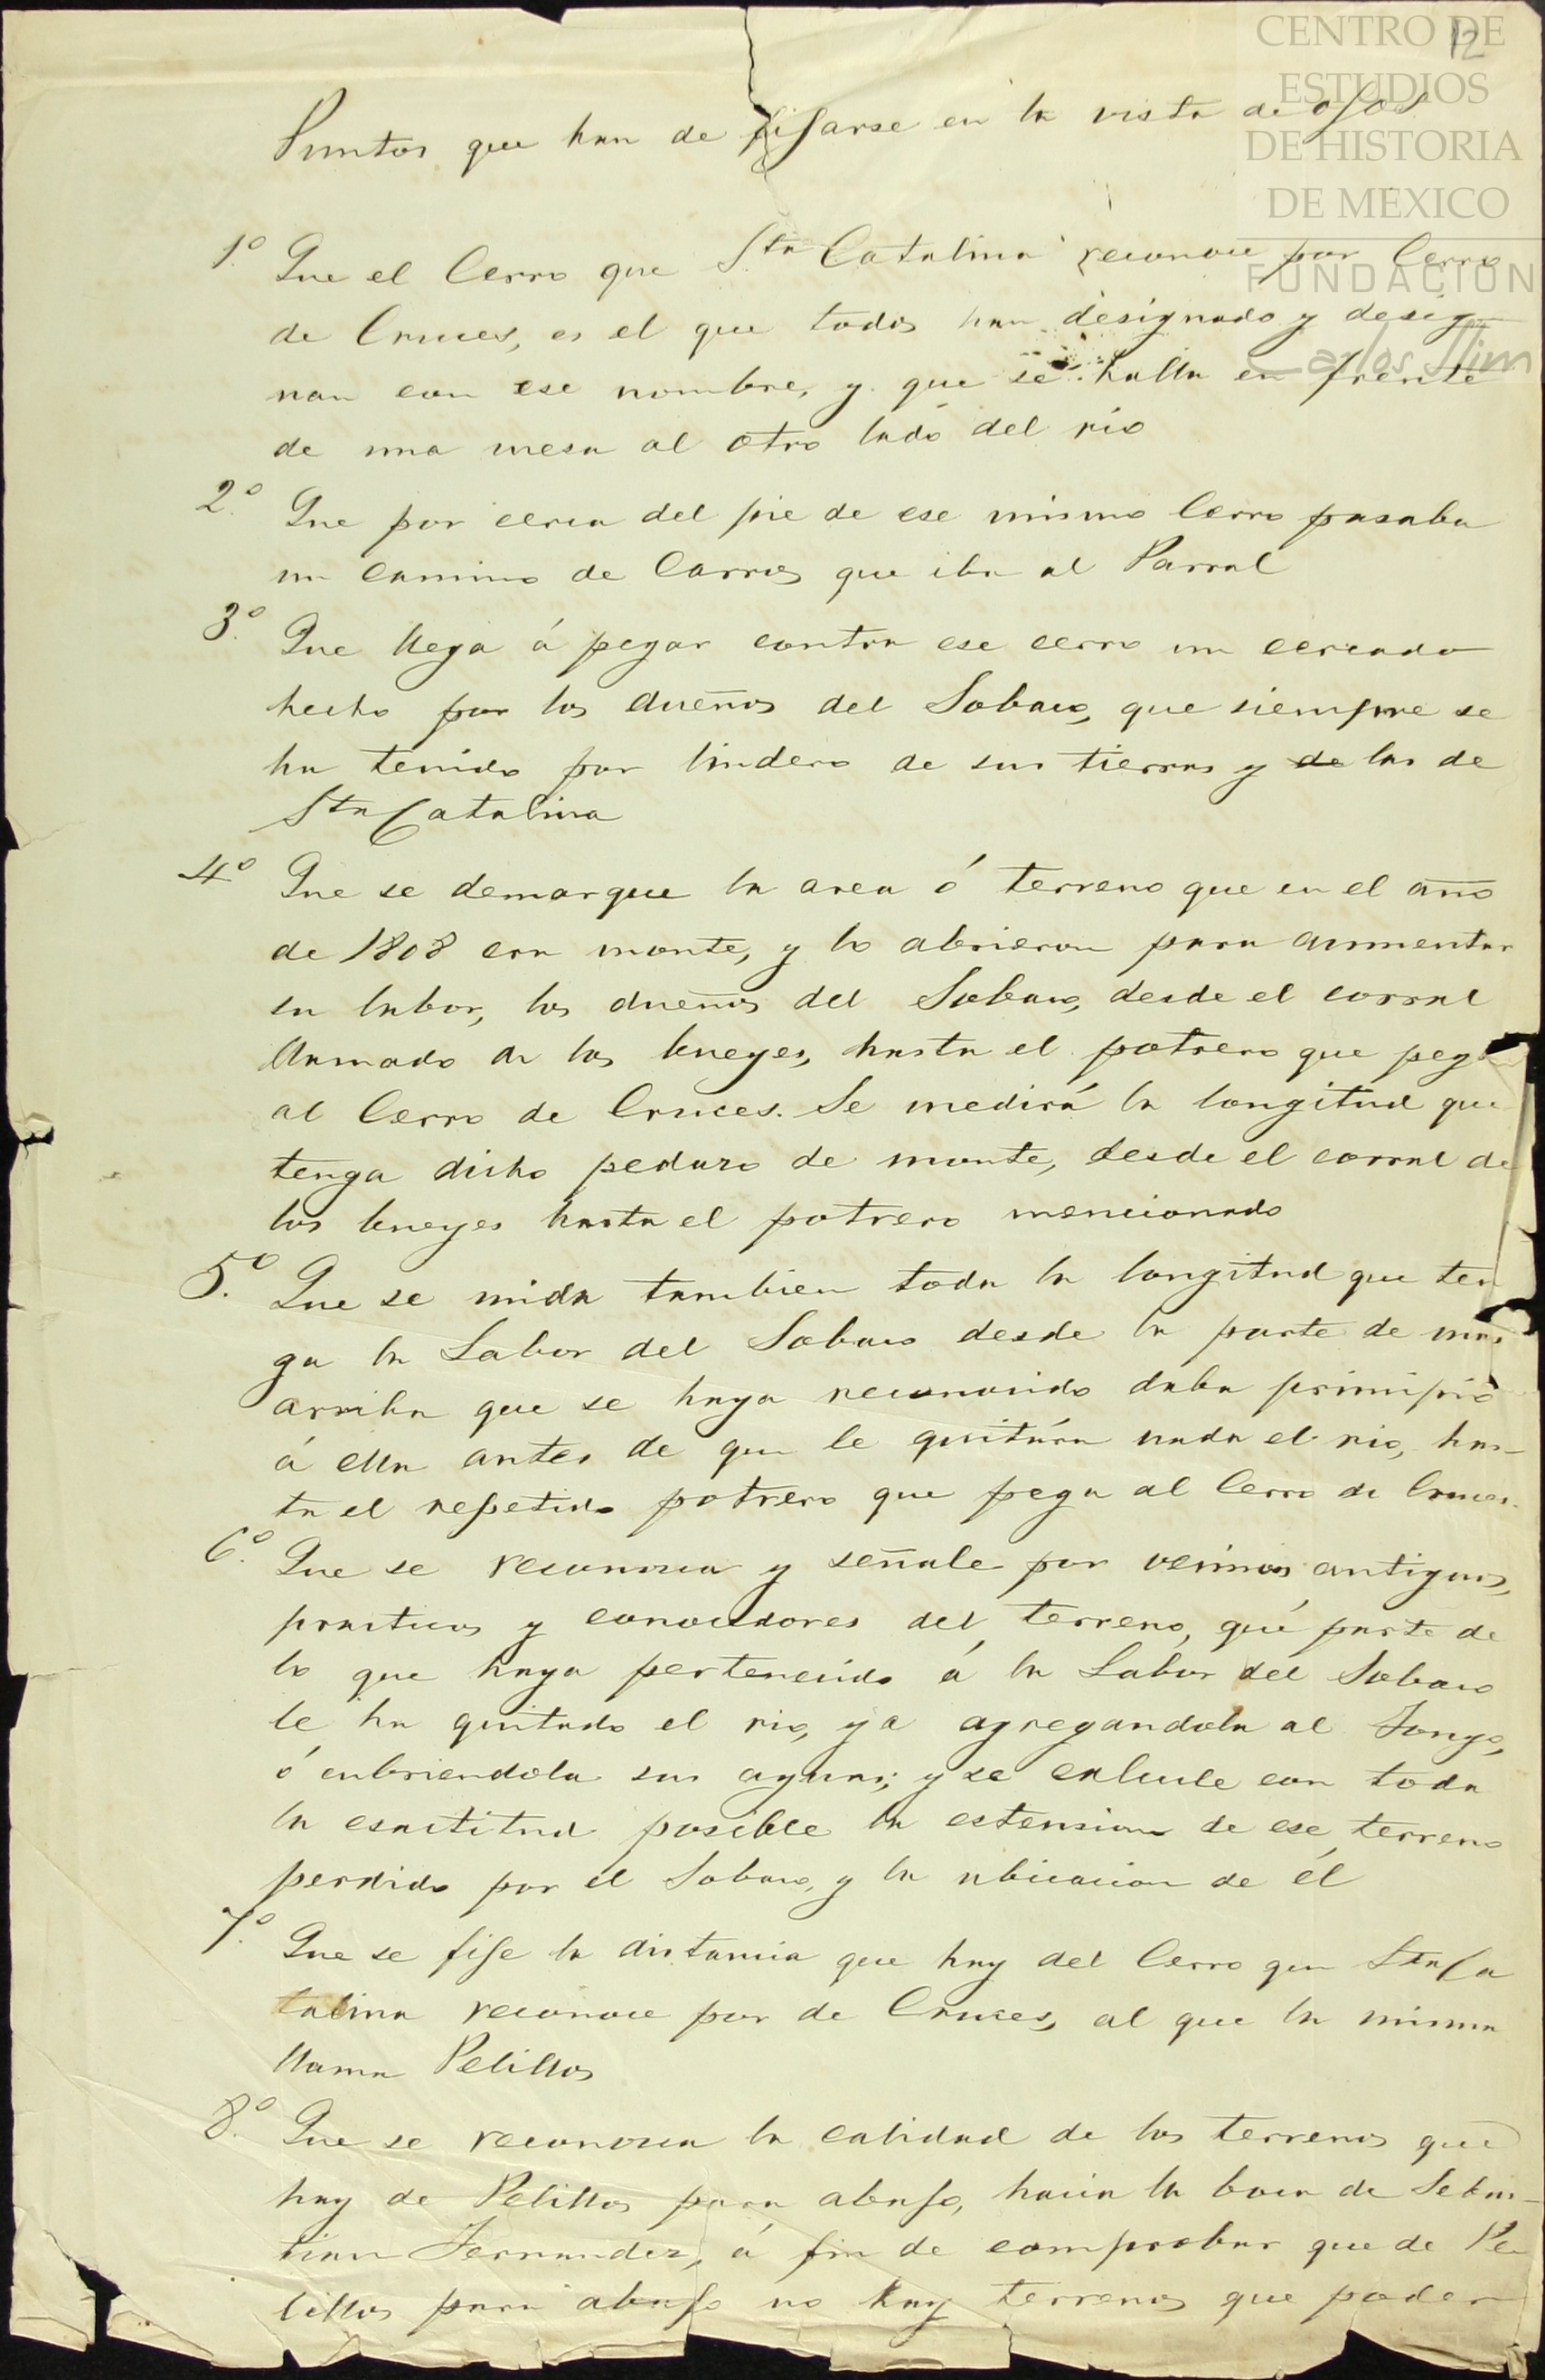 CENTRO DE
ESTUDIOS
DE HISTORIA
DE MEXICO
FUNDACIÓN
Carlos Slim
12
Puntos que han de fijarse en la vista de ojos
1.º Que el Cerro que Sta Catalina reconoce por Cerro
de Cruces, es el que todos han designado y desig-
nan con ese nombre, y que se halla en frente
de una mesa al otro lado del rio
2.º Que por cerca del pie de ese mismo Cerro pasaba
un Camino de Carros que iba al Parral
3.º Que llega á pegar contra ese cerro un cercado
hecho por los dueños del Sobaco, que siempre se
ha tenido por lindero de sus tierras y de las de
Sta Catalina
4.º Que se demarque la area ó terreno que en el año
de 1808 era monte, y lo abrieron para aumentar
su labor, los dueños del Sobaco, desde el corral
llamado de los bueyes, hasta el potrero que pega
al Cerro de Cruces. Se medirá la longitud que
tenga dicho pedazo de monte, desde el corral de
los bueyes hasta el potrero mencionado
5.º Que se mida tambien toda la longitud que ten
ga la Labor del Sobaco desde la parte de mas
arriba que se haya reconocido daba principio
á ella antes de que le quitára nada el rio, has-
ta el repetido potrero que pega al Cerro de Cruces.
6.º Que se reconozca y señale por vecinos antiguos,
practicos y conocedores del terreno, qué parte de
lo que haya pertenecido á la Labor del Sobaco
le ha quitado el rio, ya agregandola al Jongo,
ó cubriendola sus aguas; y se calcule con toda
la esactitud posible la estension de ese terreno
perdido por el Sobaco, y la ubicacion de él
7.º Que se fije la distancia que hay del Cerro que Sta Ca
talina reconoce por de Cruces, al que la misma
llama Pelillos
8.º Que se reconozca la calidad de los terrenos que
hay de Pelillos para abajo, hacia la boca de Sebas-
tian Fernandez, á fin de comprobar que de Pe
lillos para abajo no hay terrenos que poder